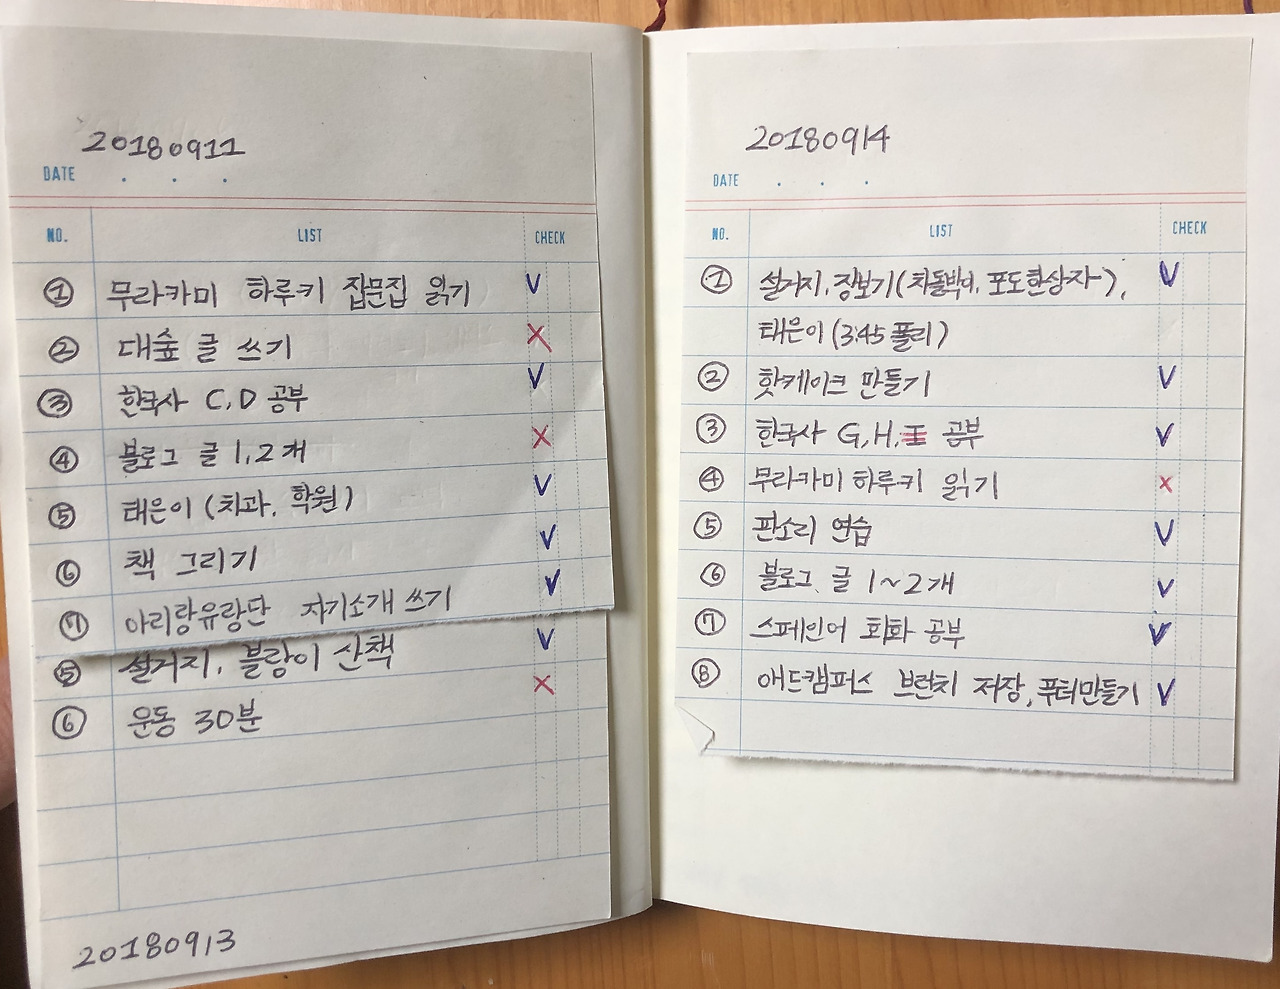 20180911
DATE . . .
NO. LIST CHECK
① 무라카미 하루키 잡문집 읽기 V
② 대숲 글 쓰기 X
③ 한국사 C, D 공부 V
④ 블로그 글 1, 2개 X
⑤ 태은이 (치과, 학원) V
⑥ 책 그리기 V
⑦ 아리랑유랑단 자기소개 쓰기 V
⑤ 설거지, 블랑이 산책 V
⑥ 운동 30분 X
20180913
20180914
DATE . . .
NO. LIST CHECK
① 설거지, 장보기(차돌박이, 포도한상자), V
태은이 (3:45 폴리)
② 핫케이크 만들기 V
③ 한국사 G, H, I 공부 V
④ 무라카미 하루키 읽기 X
⑤ 판소리 연습 V
⑥ 블로그 글 1~2개 V
⑦ 스페인어 회화 공부 V
⑧ 애드캠퍼스 브런치 저장, 푸터만들기 V